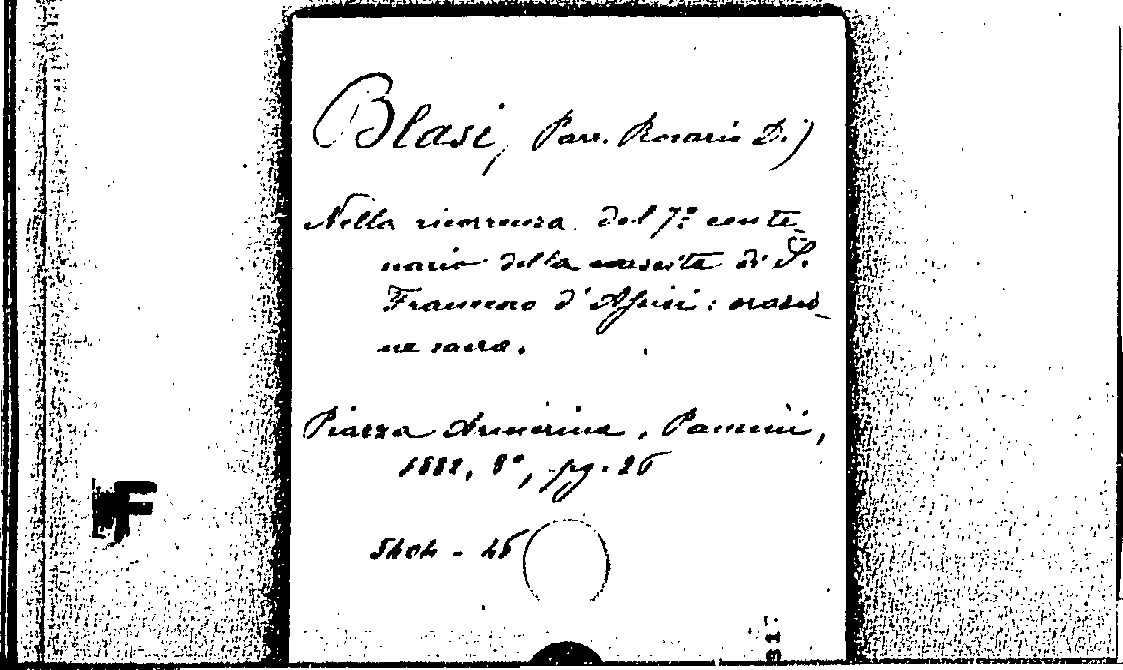 Blasi, Parr. Rosario Di)
Nella ricorrenza del 7º cente-
nario della nascita di S.
Francesco d'Assisi: orazio-
ne sacra.
Piazza Armerina, Pansini,
1882, 8º, pg. 26
5404 - 46